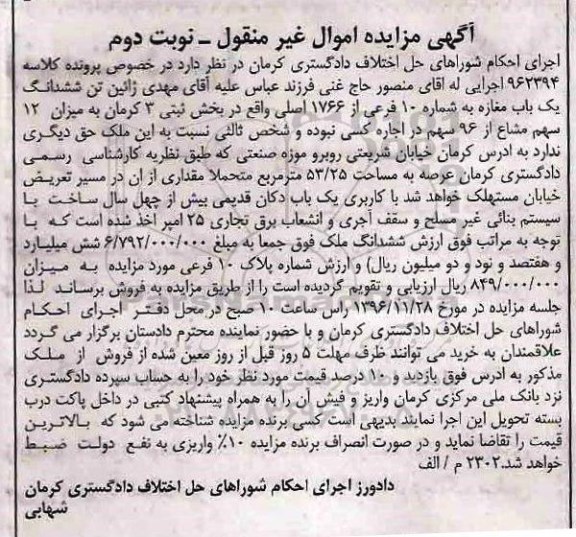 آگهی مزایده اموال غیر منقول ـ نوبت دوم
اجرای احکام شوراهای حل اختلاف دادگستری کرمان در نظر دارد در خصوص پرونده کلاسه
۹۶۲۳۹۴ اجرایی له اقای منصور حاج غنی فرزند عباس علیه آقای مهدی زائین تن ششدانگ
یک باب مغازه به شماره ۱۰ فرعی از ۱۷۶۶ اصلی واقع در بخش ثبتی ۳ کرمان به میزان ۱۲
سهم مشاع از ۹۶ سهم در اجاره کسی نبوده و شخص ثالثی نسبت به این ملک حق دیگری
ندارد به ادرس کرمان خیابان شریعتی روبرو موزه صنعتی که طبق نظریه کارشناسی رسمی
دادگستری کرمان عرصه به مساحت ۵۳/۲۵ مترمربع متحملا مقداری از ان در مسیر تعریض
خیابان مستهلک خواهد شد با کاربری یک باب دکان قدیمی بیش از چهل سال ساخت با
سیستم بنائی غیر مسلح و سقف آجری و انشعاب برق تجاری ۲۵ امپر اخذ شده است که با
توجه به مراتب فوق ارزش ششدانگ ملک فوق جمعا به مبلغ ۶/۷۹۲/۰۰۰/۰۰۰ شش میلیارد
و هفتصد و نود و دو میلیون ریال) و ارزش شماره پلاک ۱۰ فرعی مورد مزایده به میزان
۸۴۹/۰۰۰/۰۰۰ ریال ارزیابی و تقویم گردیده است را از طریق مزایده به فروش برساند لذا
جلسه مزایده در مورخ ۱۳۹۶/۱۱/۲۸ راس ساعت ۱۰ صبح در محل دفتر اجرای احکام
شوراهای حل اختلاف دادگستری کرمان و با حضور نماینده محترم دادستان برگزار می گردد
علاقمندان به خرید می توانند ظرف مهلت ۵ روز قبل از روز معین شده از فروش از ملک
مذکور به ادرس فوق بازدید و ۱۰ درصد قیمت مورد نظر خود را به حساب سپرده دادگستری
نزد بانک ملی مرکزی کرمان واریز و فیش آن را به همراه پیشنهاد کتبی در داخل پاکت درب
بسته تحویل این اجرا نمایند بدیهی است کسی برنده مزایده شناخته می شود که بالاترین
قیمت را تقاضا نماید و در صورت انصراف برنده مزایده ۱۰٪ واریزی به نفع دولت ضبط
خواهد شد.۲۳۰۲ م / الف
دادورز اجرای احکام شوراهای حل اختلاف دادگستری کرمان
شهابی